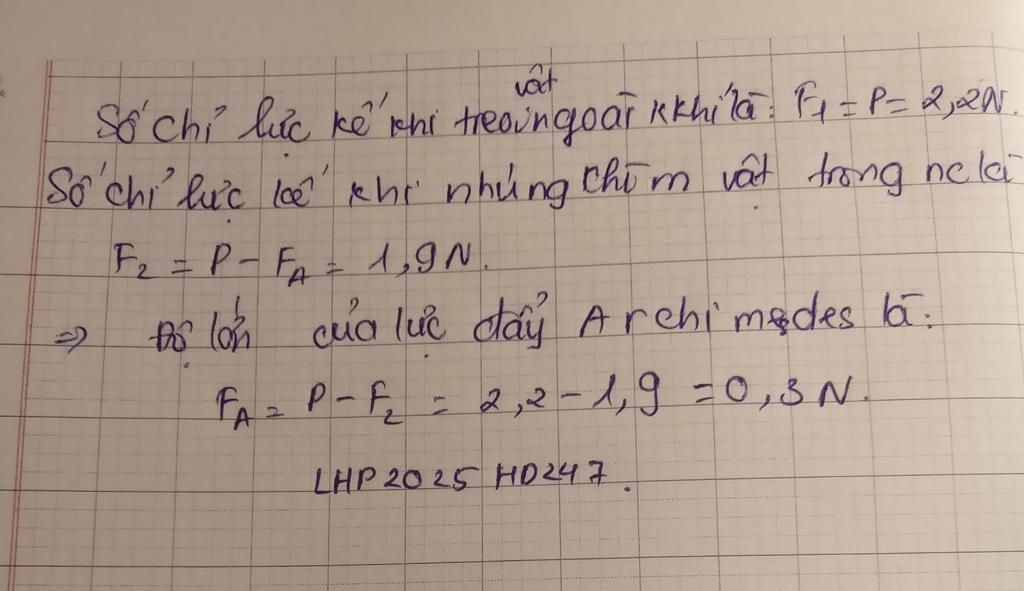 Số chỉ lực kế khi treo vật ngoài kkhí là: F₁ = P = 2,2N.
Số chỉ lực kế khi nhúng chìm vật trong nc là
F₂ = P - F_A = 1,9N.
⇒ Độ lớn của lực đẩy Archimedes là:
F_A = P - F₂ = 2,2 - 1,9 = 0,3N.
LHP2025 HD247.